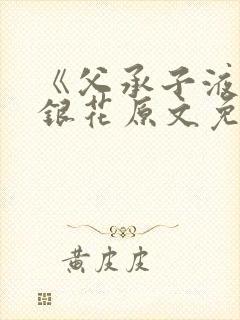 《父承子液
銀花原文免
黄皮皮